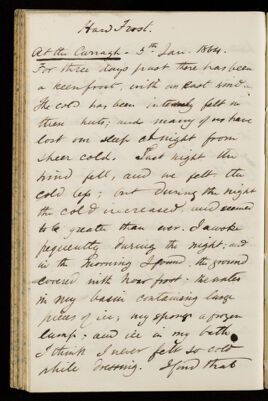 Hard Frost.
At the Curragh - 5th Jan. 1864.
For three days past there has been
a keen frost, with an East wind.
The cold has been intensely felt in
these huts; and many of us have
lost our sleep at night from
sheer cold. Last night the
wind fell, and we felt the
cold less; but during the night
the cold increased, and seemed
to be greater than ever. I awoke
frequently during the night; and
in the morning I found the ground
covered with hoar frost; the water
in my basin containing large
pieces of ice; my sponge a frozen
lump; and ice in my bath.
I think I never felt so cold
while dressing. I find that